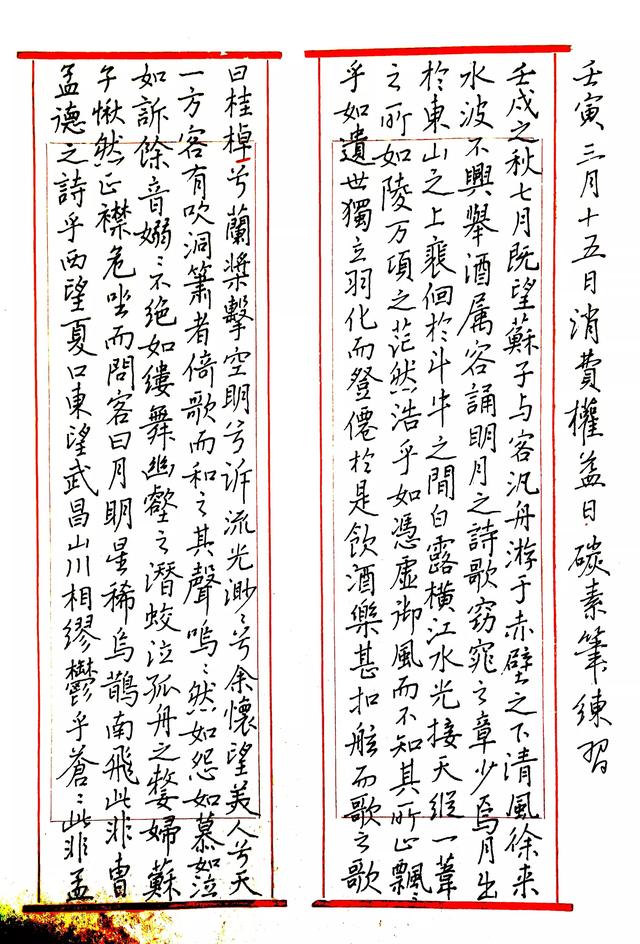 壬寅三月十五日消费權益日碳素筆練習
壬戌之秋七月既望蘇子与客汎舟游于赤壁之下清風徐来
水波不興舉酒属客誦明月之詩歌窈窕之章少焉月出
於東山之上裵佪於斗牛之間白露橫江水光接天縱一葦
之所如陵万項之茫然浩乎如馮虚御風而不知其所止飄〻
乎如遺世獨立羽化而登僊於是飲酒樂甚扣舷而歌之歌
曰桂棹兮蘭槳擊空明兮訴流光渺〻兮余懷望美人兮天
一方客有吹洞簫者倚歌而和之其聲嗚〻然如怨如慕如泣
如訴餘音嫋〻不绝如缕舞幽壑之潛蛟泣孤舟之嫠婦蘇
子愀然正襟危坐而問客曰月明星稀烏鵲南飛此非曹
孟德之詩乎西望夏口東望武昌山川相繆鬱乎蒼〻此非孟